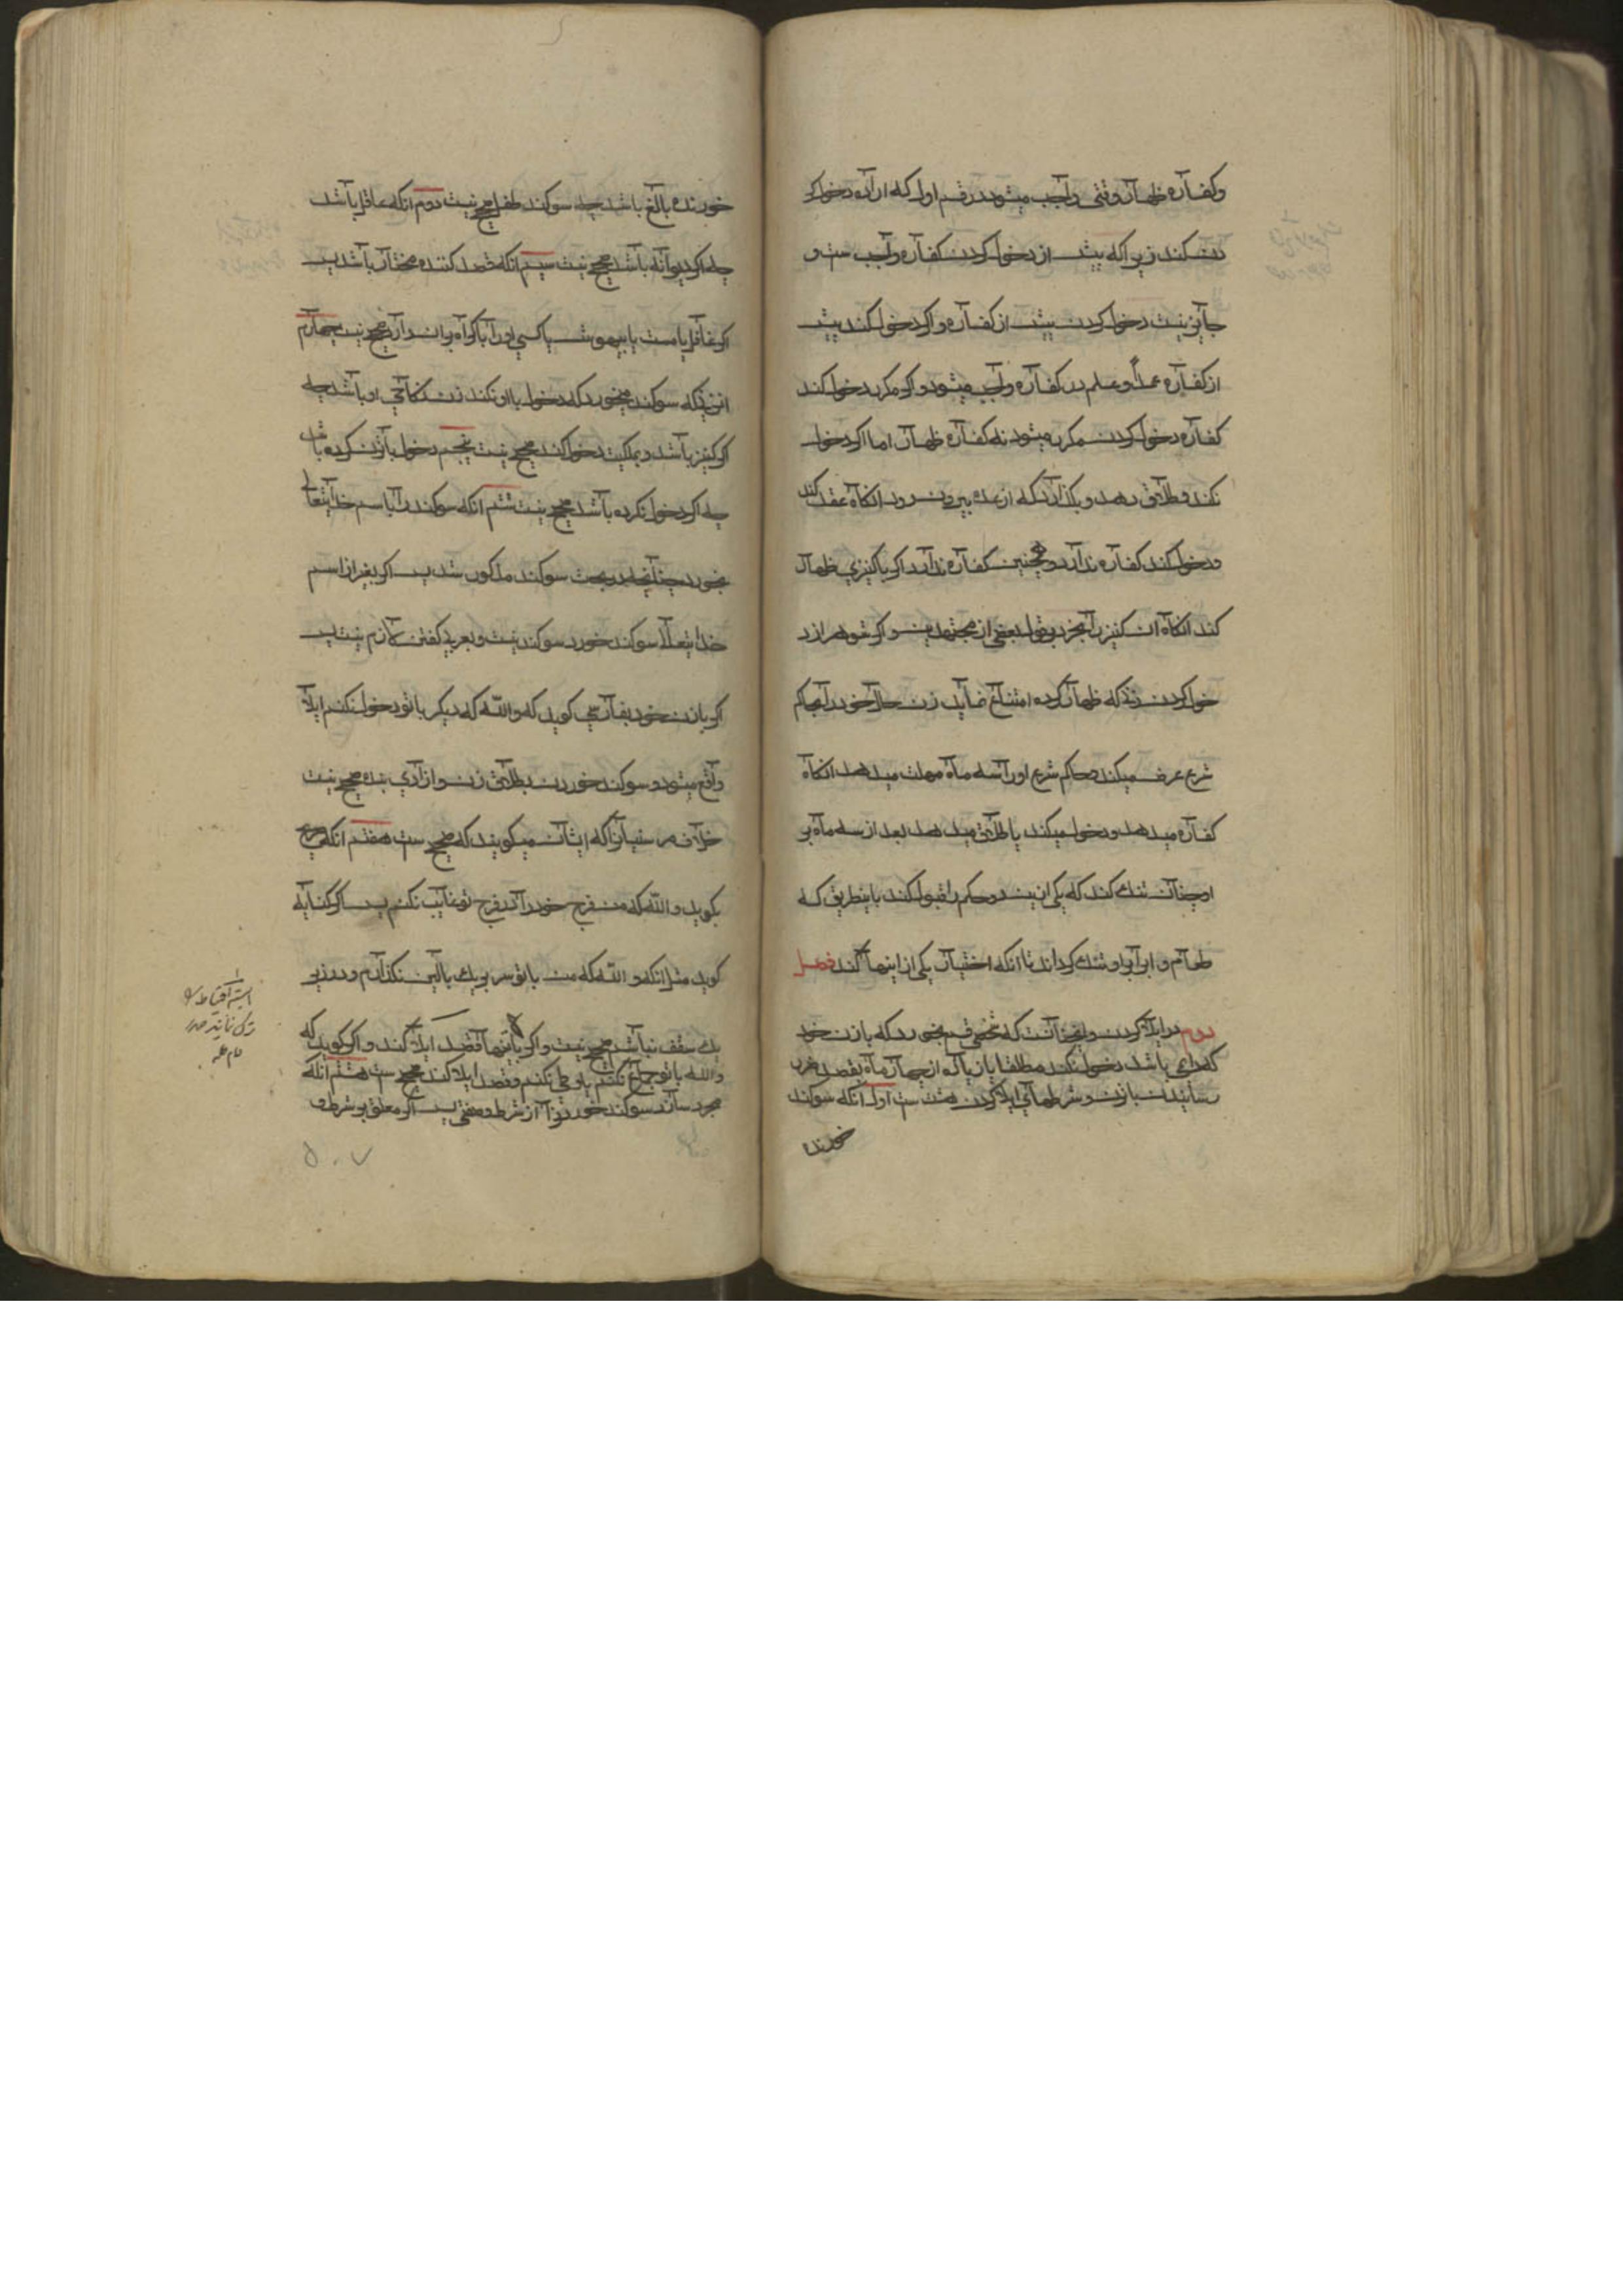 وکفاره ظهار وقتی واجب میشود در قسم اول که اراده دخول کر
دن کند زیراکه پیش از دخول کردن کفاره واجب ست و
جایز نیست دخول کردن پیش از کفاره و اکر دخول کند پیش
از کفاره عمداً و علم در کفاره واجب میشود و اکر مکرر دخول کند
کفاره دخول کردن مکرر میشود نه کفاره ظهار اما اکر دخول
نکند و طلاق دهد و بکذارد که از عده بیرون رود انکاه عقد کند
و دخول کند کفاره ندارد و همچنین کفاره ندارد اکر با کنیزی ظهار
کند انکاه ان کنیز را بخرد بقول بعضی از مجتهدین و اکر شوهر از د
خول کردن زنی که ظهار کرده امتناع نماید زن حال خود را بحاکم
شرع عرض میکند و حاکم شرع او را سه ماه مهلت میدهد انکاه
کفاره میدهد و دخول میکند یا طلاق میدهد بعد از سه ماه بر
او چنان تنک کند که یکی ازین دو حکم را قبول کند باینطریق که
طعام و اب را بر او تنک کرداند تا انکه اختیار یکی از اینها کند فصل
دوم در ایلا کردن و ان انست که شخصی قسم بخورد که با زن خود
که دایمی باشد دخول نکند مطلقا یا زیاده از چهار ماه بقصد ضرر
رسانیدن بازن و شرطهای ایلا کردن هشت ست اول انکه سوکند
خورنده
خورنده بالغ باشد چه سوکند طفل صحیح نیست دوم انکه عاقل باشد
چه اکر دیوانه باشد صحیح نیست سیم انکه قصد کننده مختار باشد پس
اکر غافل یا مست یا بیهوش یا کسی او را باکراه بر ان دارد صحیح نیست چهارم
انزنیکه سوکند میخورد که دخول با او نکند زن نکاحی او باشد چه
اکر کنیز باشد و بملکیت دخول کند صحیح نیست پنجم دخول بان زن کرده باشد
چه اکر دخول نکرده باشد صحیح نیست ششم انکه سوکند را باسم خدایتعالی
بخورد چنانچه در بحث سوکند مذکور شد پس اکر بغیر از اسم
خدایتعالا سوکند خورد سوکند نیست و بعربی کفتن لازم نیست پس
اکر با زن خود بفارسی کوید که والله که دیکر با تو دخول نکنم ایلا
واقع میشود و سوکند خوردن بطلاق زن و ازادی بنده صحیح نیست
خلاف مر سنیان را که ایشان میکویند که صحیح ست هفتم انکه صریح
بکوید والله که من فرج خود را در فرج تو غایب نکنم پس اکر کنایه
کوید مثل انکه والله که من با تو سر بریک بالین نکذارم و در زیر
یک سقف نباشم صحیح نیست و اکر باینها قصد ایلا کند و اکر کوید که
والله با تو جماع نکنم یا وطی نکنم و قصد ایلا کند صحیح ست هشتم انکه
مجرد سازد سوکند خوردن را از شرط و صفتی پس اکر معلق بر شرط و
۵۰۷